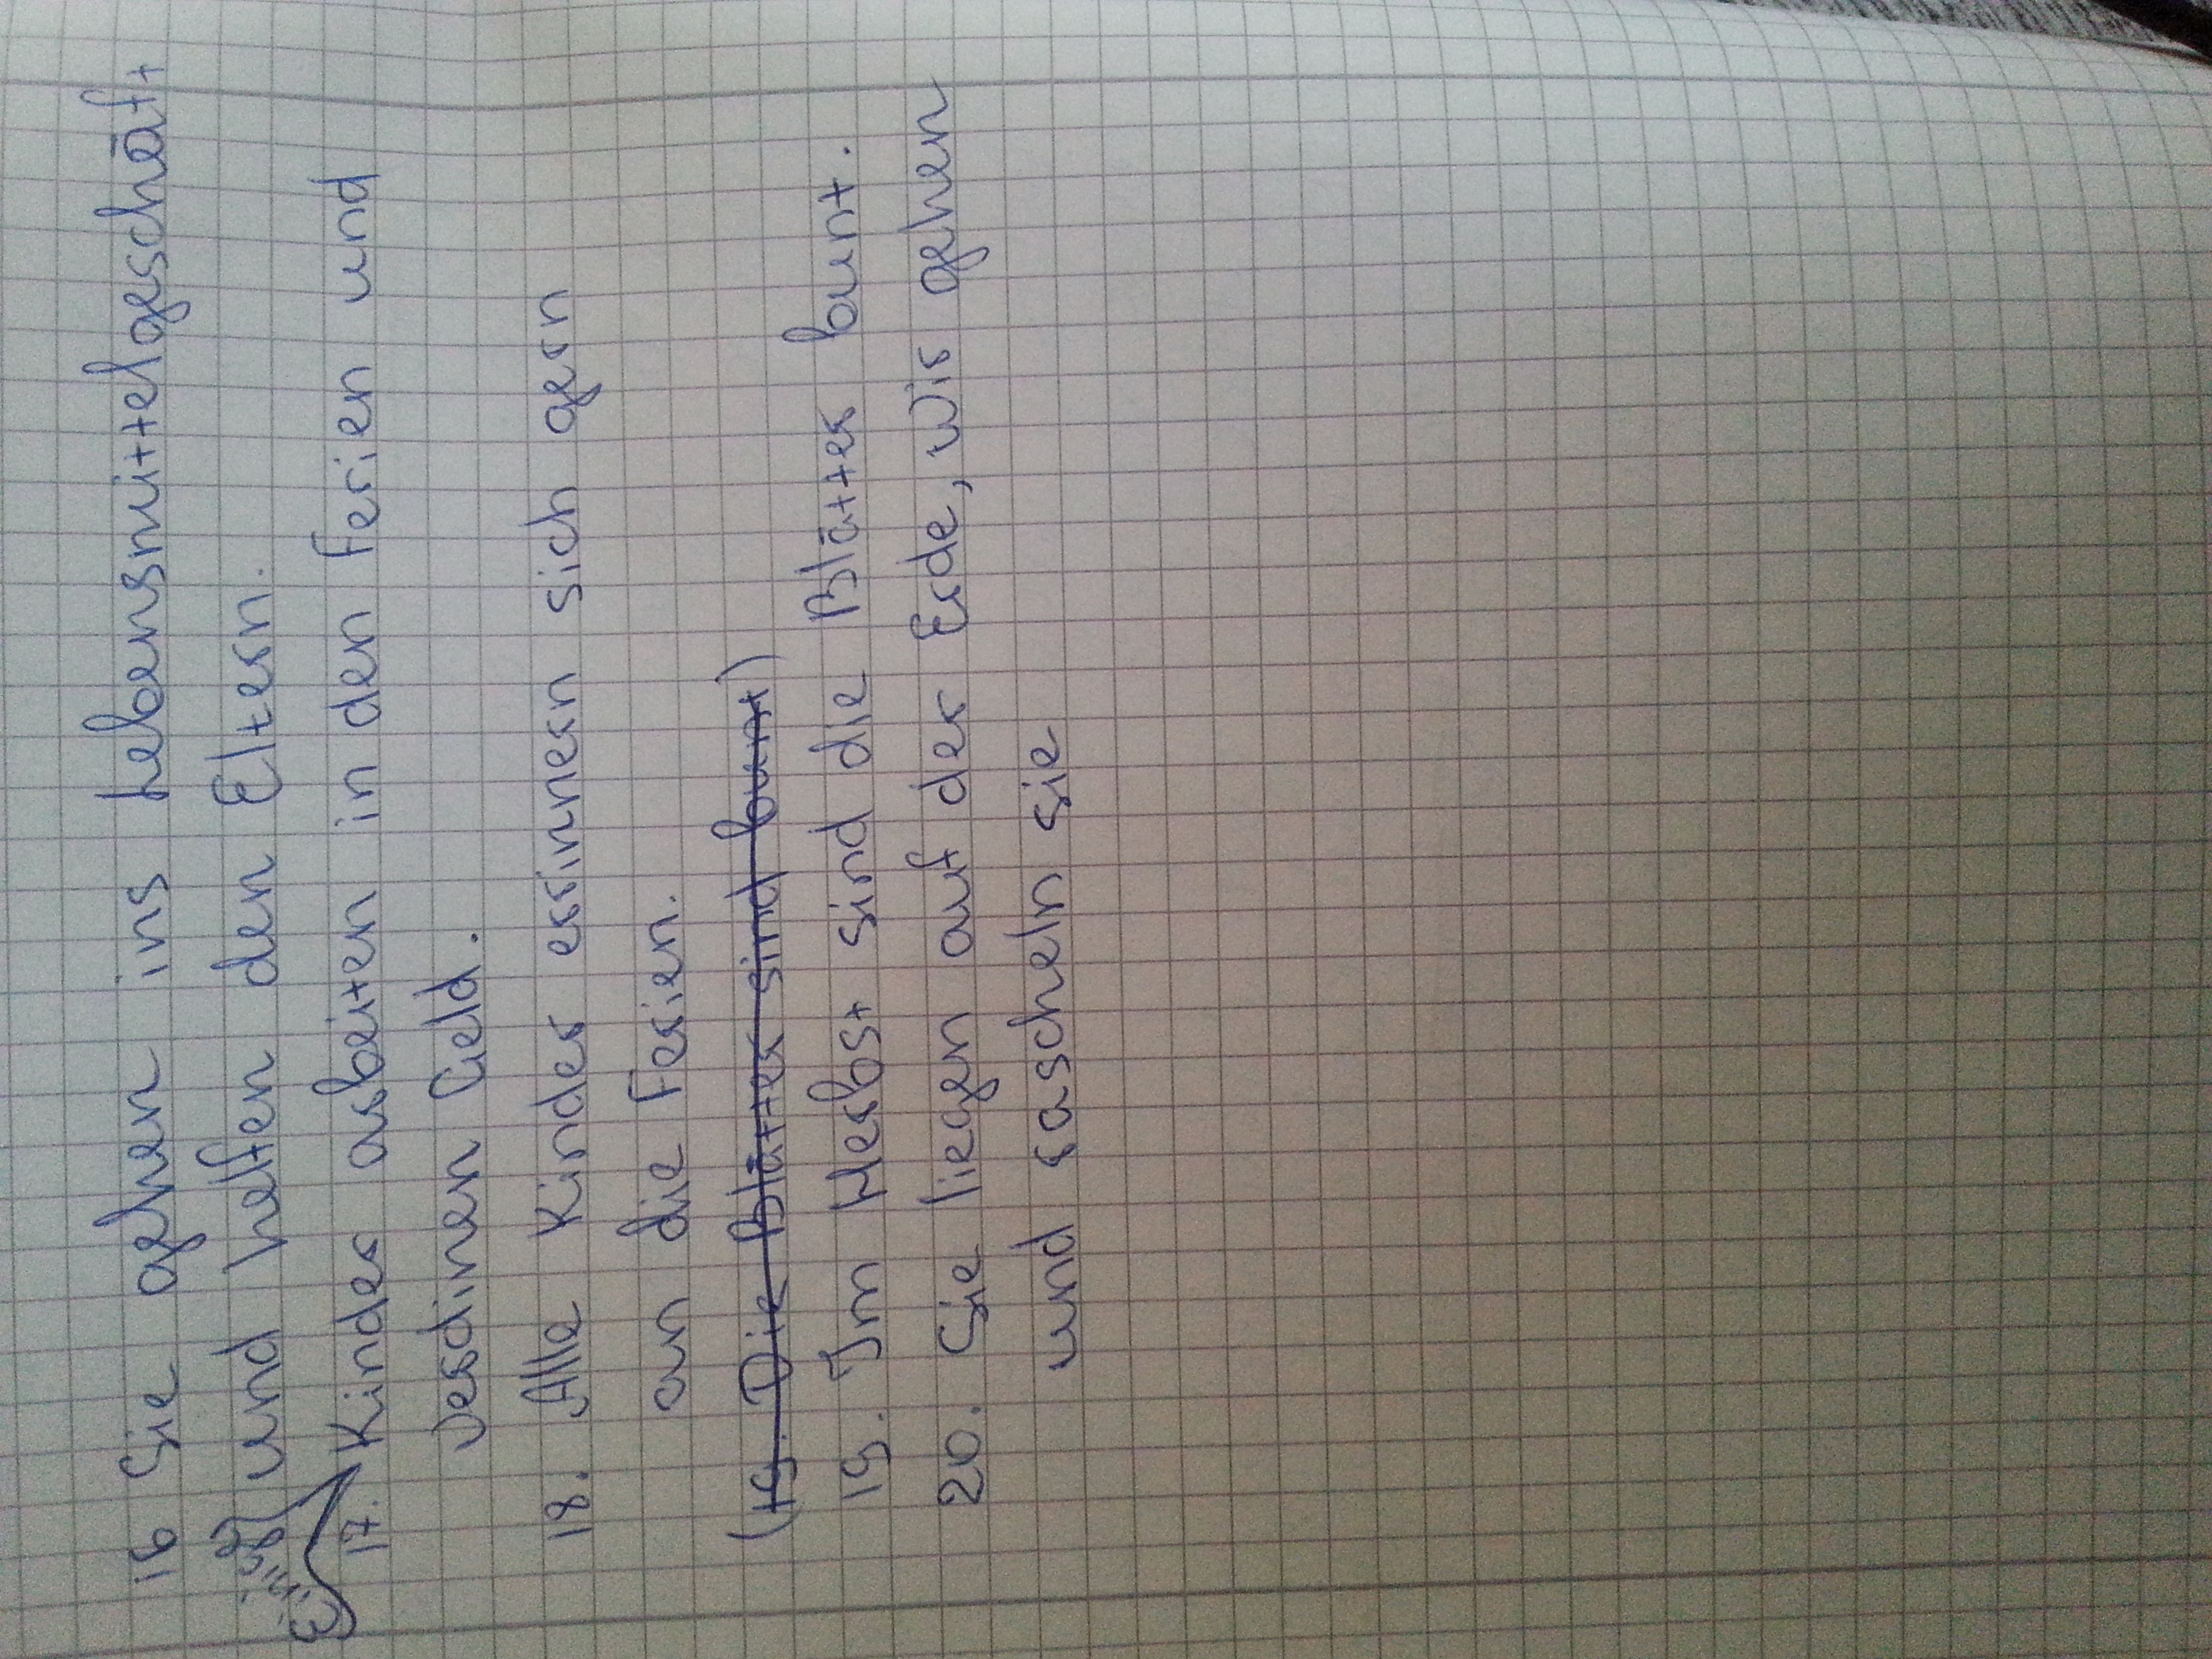 16 Sie gehen ins Lebensmittelgeschäft
und helfen den Eltern.
Einige
17. Kinder arbeiten in den Ferien und
verdinen Geld.
18. Alle Kinder erinnern sich gern
an die Ferien.
(19. Die Blätter sind bunt)
19. Im Herbst sind die Blätter bunt.
20. Sie liegen auf der Erde, wir gehen
und rascheln sie